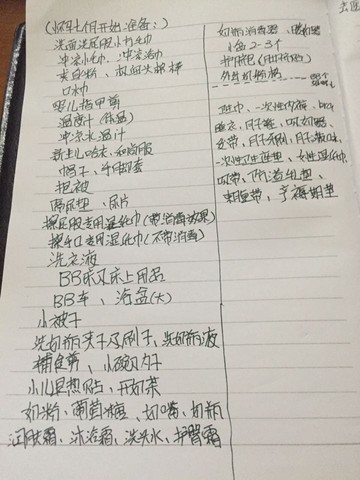 (怀孕七个月开始准备:)
洗面洗屁股小方毛巾
冲凉小毛巾、冲凉浴巾
爽身粉、
口水巾
婴儿指甲剪
温度计(体温)
冲凉水温计
新生儿哈衣、和尚服
帽子、手脚套
抱被
隔尿垫、尿片
擦屁股专用湿纸巾(带消毒效果)
擦手口专用湿纸巾(不带消毒)
洗衣液
BB床及床上用品
BB车、浴盆(大)
小被子
洗奶瓶夹子及刷子、洗奶瓶液
辅食剪、小碗及勺子
小儿退热贴、开奶茶
奶粉、葡萄糖、奶嘴、奶瓶
润肤霜、沐浴霜、洗头水、护臀霜
奶瓶消毒器、暖奶器
小盆2-3个
外出奶粉格
一次性内裤、
月子鞋、吸奶器、
皮带、月子牙刷、月子漱口水、
一次性卫生莲垫、女性湿纸巾、
产褥期垫